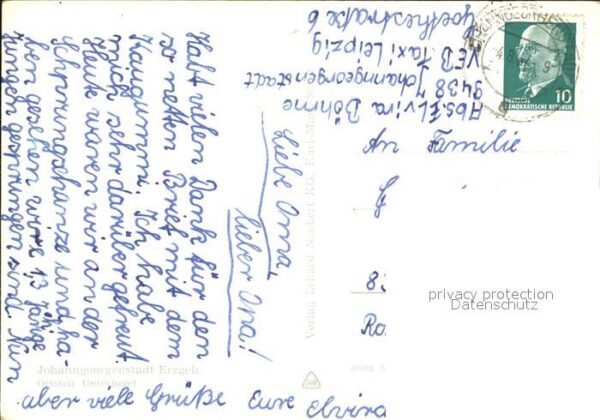 Liebe Oma,
lieber Opa!
Habt vielen Dank für den
so netten Brief mit dem
Kaugummi. Ich habe
mich sehr darüber gefreut.
Heute waren wir an der
Schprungschanze und ha-
ben gesehen wie 13 jährige
Jungen gesprungen sind. Nun
aber viele Grüße Eure Elvira
Abs. Elvira Böhme
9438 Johanngeorgenstadt
VEB Taxi Leipzig
Goethestraße 6
An Familie
G
8
Ra
DEUTSCHE
DEMOKRATISCHE REPUBLIK
10
Johanngeorgenstadt Erzgeb.
Ortsteil Unterjugel
Verlag Erhard Neubert KG, Karl-Marx-
privacy protection
Datenschutz